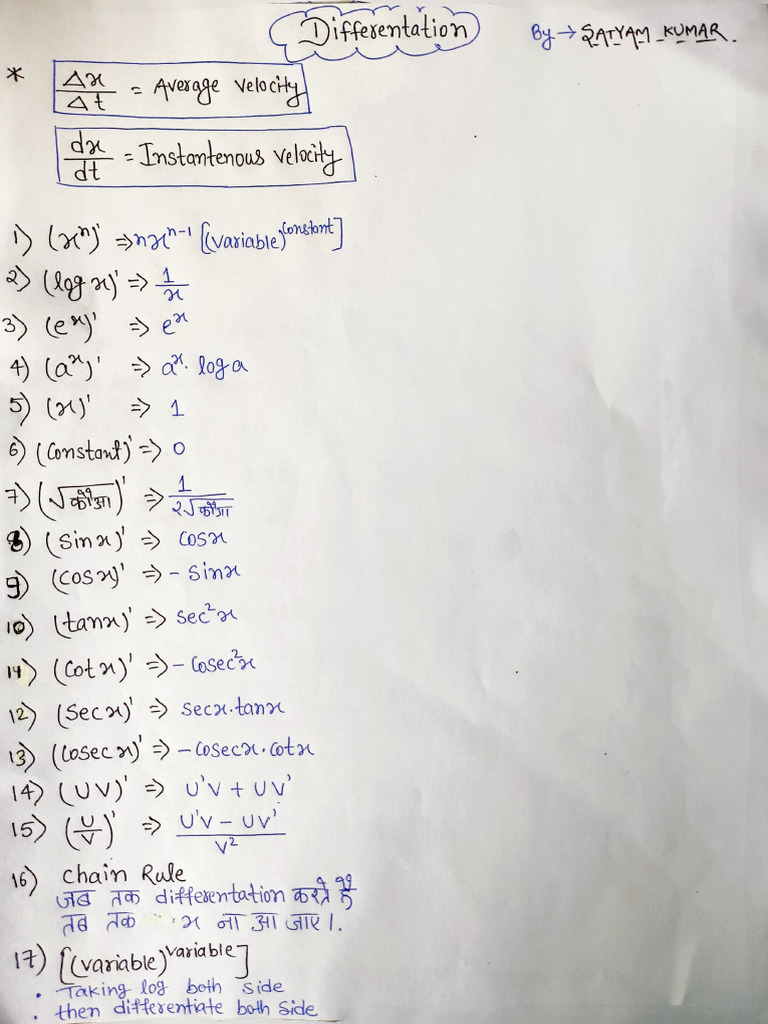 Differentation
By → SATYAM KUMAR.
* Δx/Δt = Average Velocity
dx/dt = Instantenous Velocity
1) (xⁿ)' ⇒ nxⁿ⁻¹ [(variable)^constant]
2) (log x)' ⇒ 1/x
3) (eˣ)' ⇒ eˣ
4) (aˣ)' ⇒ aˣ· log a
5) (x)' ⇒ 1
6) (Constant)' ⇒ 0
7) (√कौआ)' ⇒ 1/2√कौआ
8) (sinx)' ⇒ cosx
9) (cosx)' ⇒ - sinx
10) (tanx)' ⇒ sec²x
11) (cotx)' ⇒ - cosec²x
12) (secx)' ⇒ secx·tanx
13) (cosecx)' ⇒ - cosecx·cotx
14) (UV)' ⇒ U'V + UV'
15) (U/V)' ⇒ U'V - UV'/V²
16) Chain Rule
जब तक differentation करते रहे
तब तक x ना आ जाए।.
17) [(variable)^variable]
. Taking log both side
. then differentiate both side